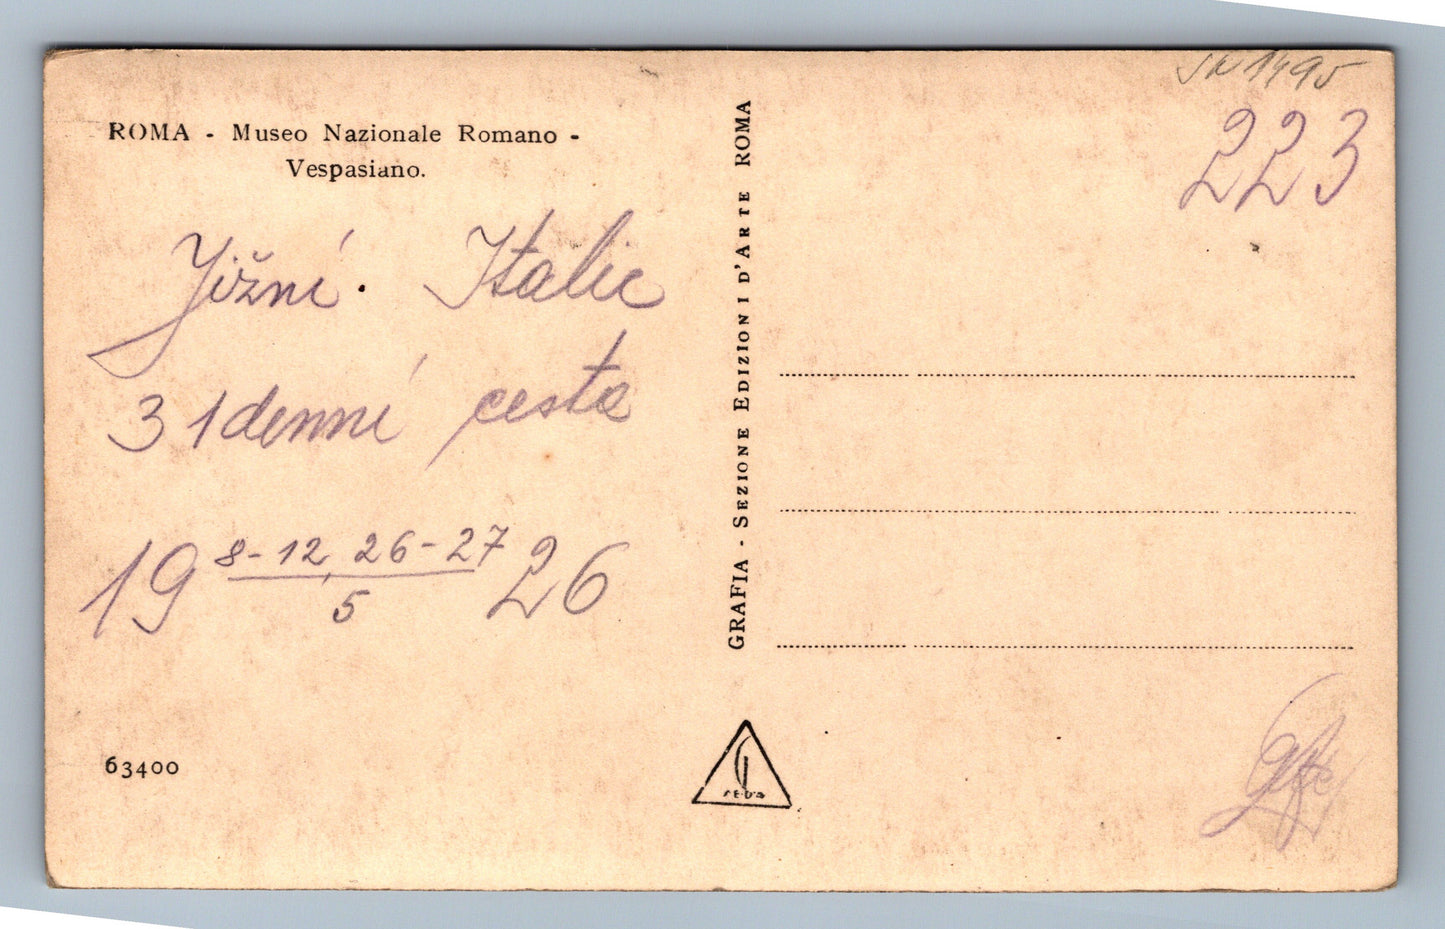 ROMA - Museo Nazionale Romano -
Vespasiano.
Jižní. Italie
31denní cesta
19 8-12, 26-27/5 26
63400
GRAFIA - SEZIONE EDIZIONI D'ARTE ROMA
S.E.D'A
1495
223